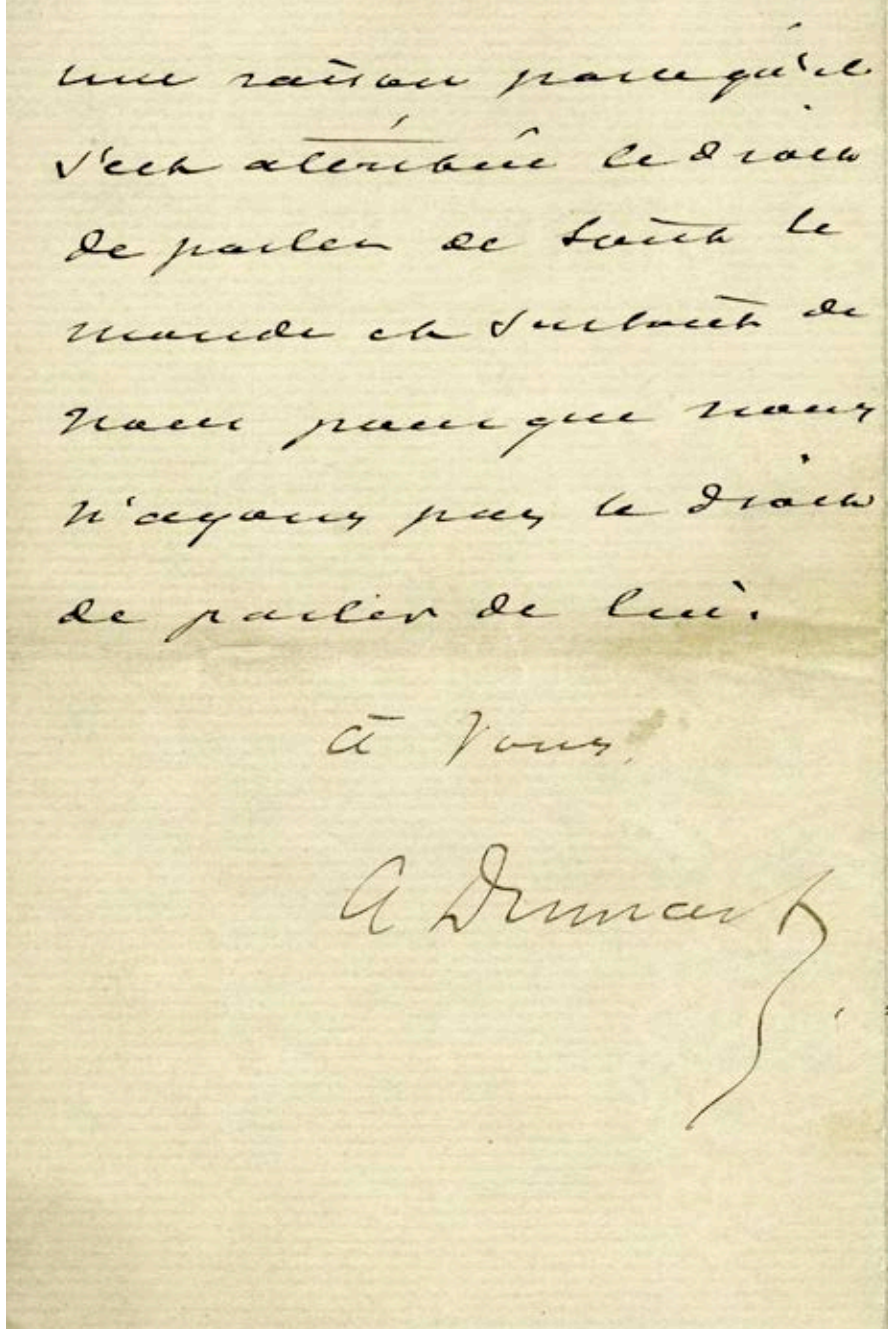 une raison parce qu'il
s'est attribué le droit
de parler de tout le
monde et surtout de
nous pour que nous
n'ayons pas le droit
de parler de lui.
à vous
A Dumas f